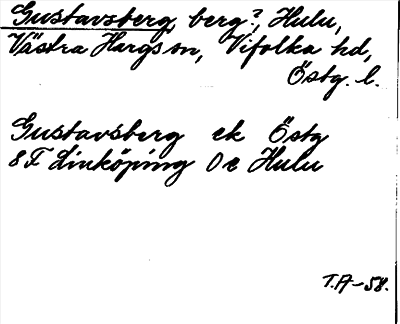 Gustavsberg, berg?, Hulu,
Västra Hargs sn, Vifolka hd,
Östg. l.
Gustavsberg ek Östg
8F Linköping O e Hulu
T.A-58.